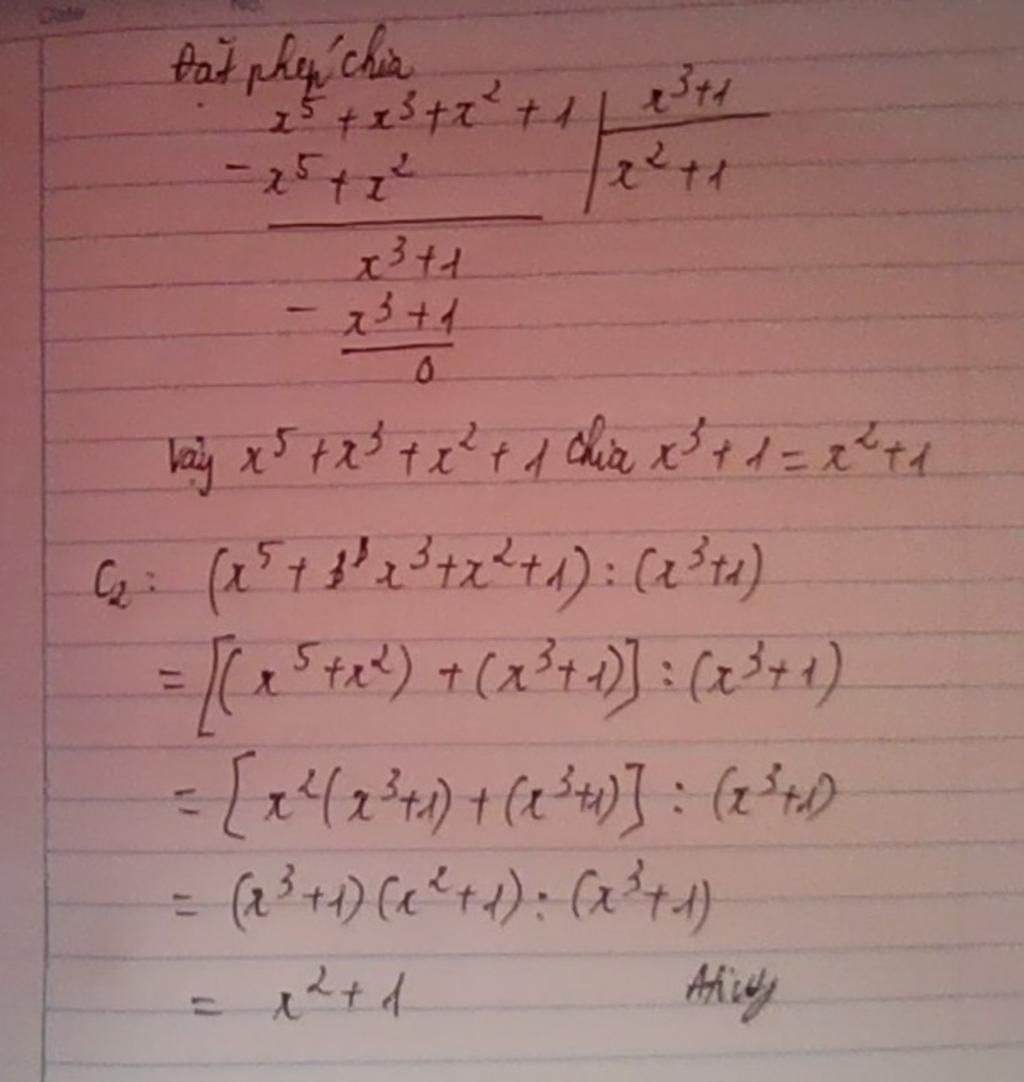 Đặt phép chia
x⁵ + x³ + x² + 1 | x³+1
- x⁵ + x² | x² + 1
x³ + 1
- x³ + 1
0
Vậy x⁵ + x³ + x² + 1 chia x³ + 1 = x² + 1
C₂: (x⁵ + x³ + x² + 1) : (x³+1)
= [(x⁵ + x²) + (x³ + 1)] : (x³ + 1)
= [x²(x³+1) + (x³+1)] : (x³+1)
= (x³+1)(x²+1) : (x³+1)
= x² + 1